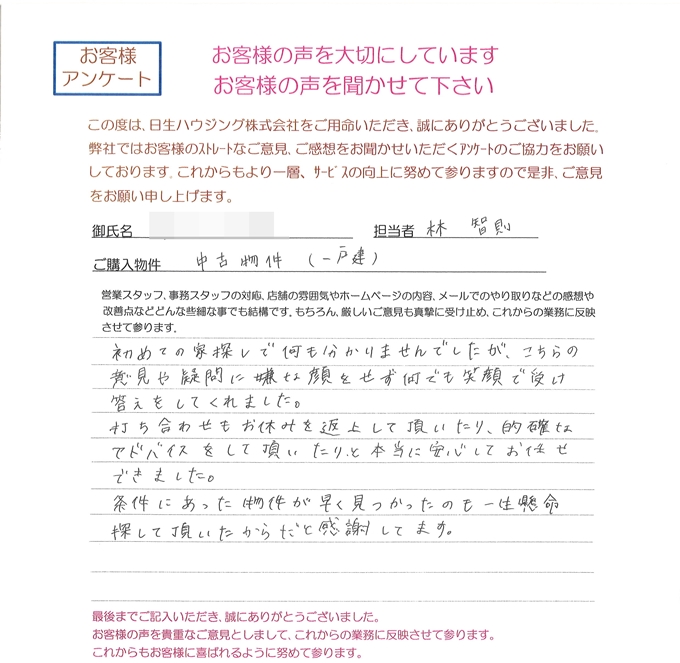 お客様
アンケート
お客様の声を大切にしています
お客様の声を聞かせて下さい
この度は、日生ハウジング株式会社をご用命いただき、誠にありがとうございました。
弊社ではお客様のｽﾄﾚｰﾄなご意見、ご感想をお聞かせいただくｱﾝｹｰﾄのご協力をお願い
しております。これからもより一層、ｻｰﾋﾞｽの向上に努めて参りますので是非、ご意見
をお願い申し上げます。
御氏名 担当者 林 智則
ご購入物件 中古物件 (一戸建)
営業スタッフ、事務スタッフの対応、店舗の雰囲気やホームページの内容、メールでのやり取りなどの感想や
改善点などどんな些細な事でも結構です。もちろん、厳しいご意見も真摯に受け止め、これからの業務に反映
させて参ります。
初めての家探しで何も分かりませんでしたが、こちらの
意見や疑問に嫌な顔をせず何でも笑顔で受け
答えをしてくれました。
打ち合わせもお休みを返上して頂いたり、的確な
アドバイスをして頂いたりと本当に安心してお任せ
できました。
条件にあった物件が早く見つかったのも一生懸命
探して頂いたからだと感謝してます。
最後までご記入いただき、誠にありがとうございました。
お客様の声を貴重なご意見としまして、これからの業務に反映させて参ります。
これからもお客様に喜ばれるように努めて参ります。